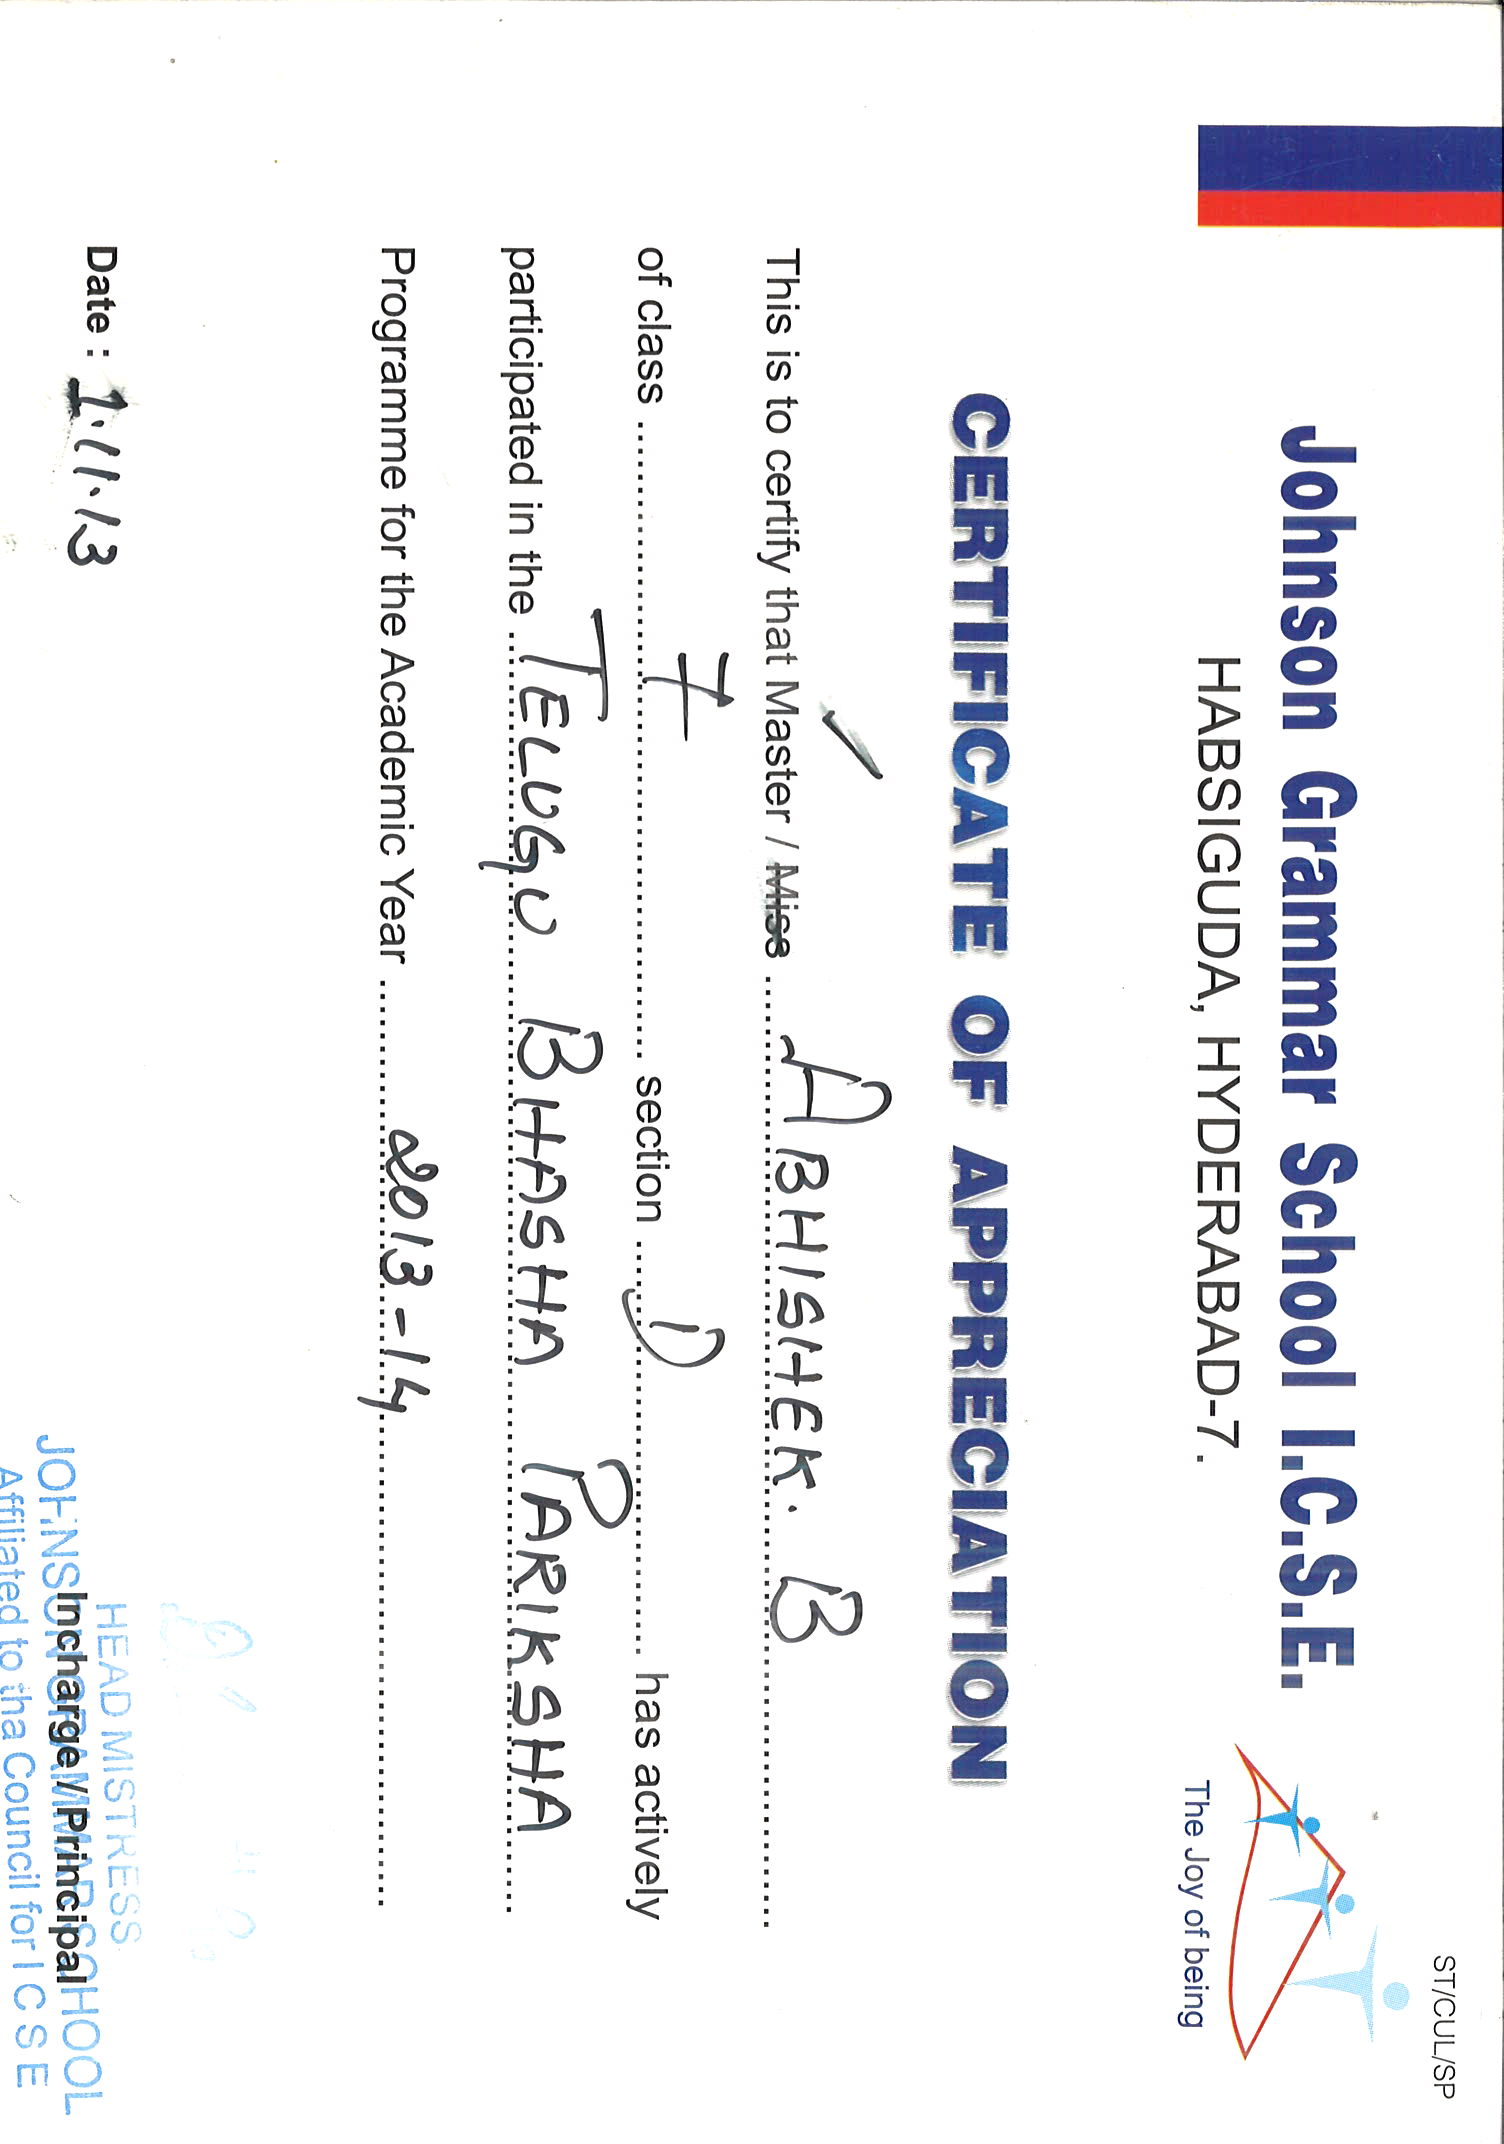 ST/CUL/SP
Johnson Grammar School I.C.S.E.
HABSIGUDA, HYDERABAD-7.
The Joy of being
CERTIFICATE OF APPRECIATION
This is to certify that Master / Miss ABHISHEK. B
of class 7 section D has actively
participated in the TELUGU BHASHA PARIKSHA
Programme for the Academic Year 2013-14
Date : 1.11.13
HEAD MISTRESS
Incharge / Principal
JOHNSON GRAMMAR SCHOOL
Affiliated to tha Council for I C S E